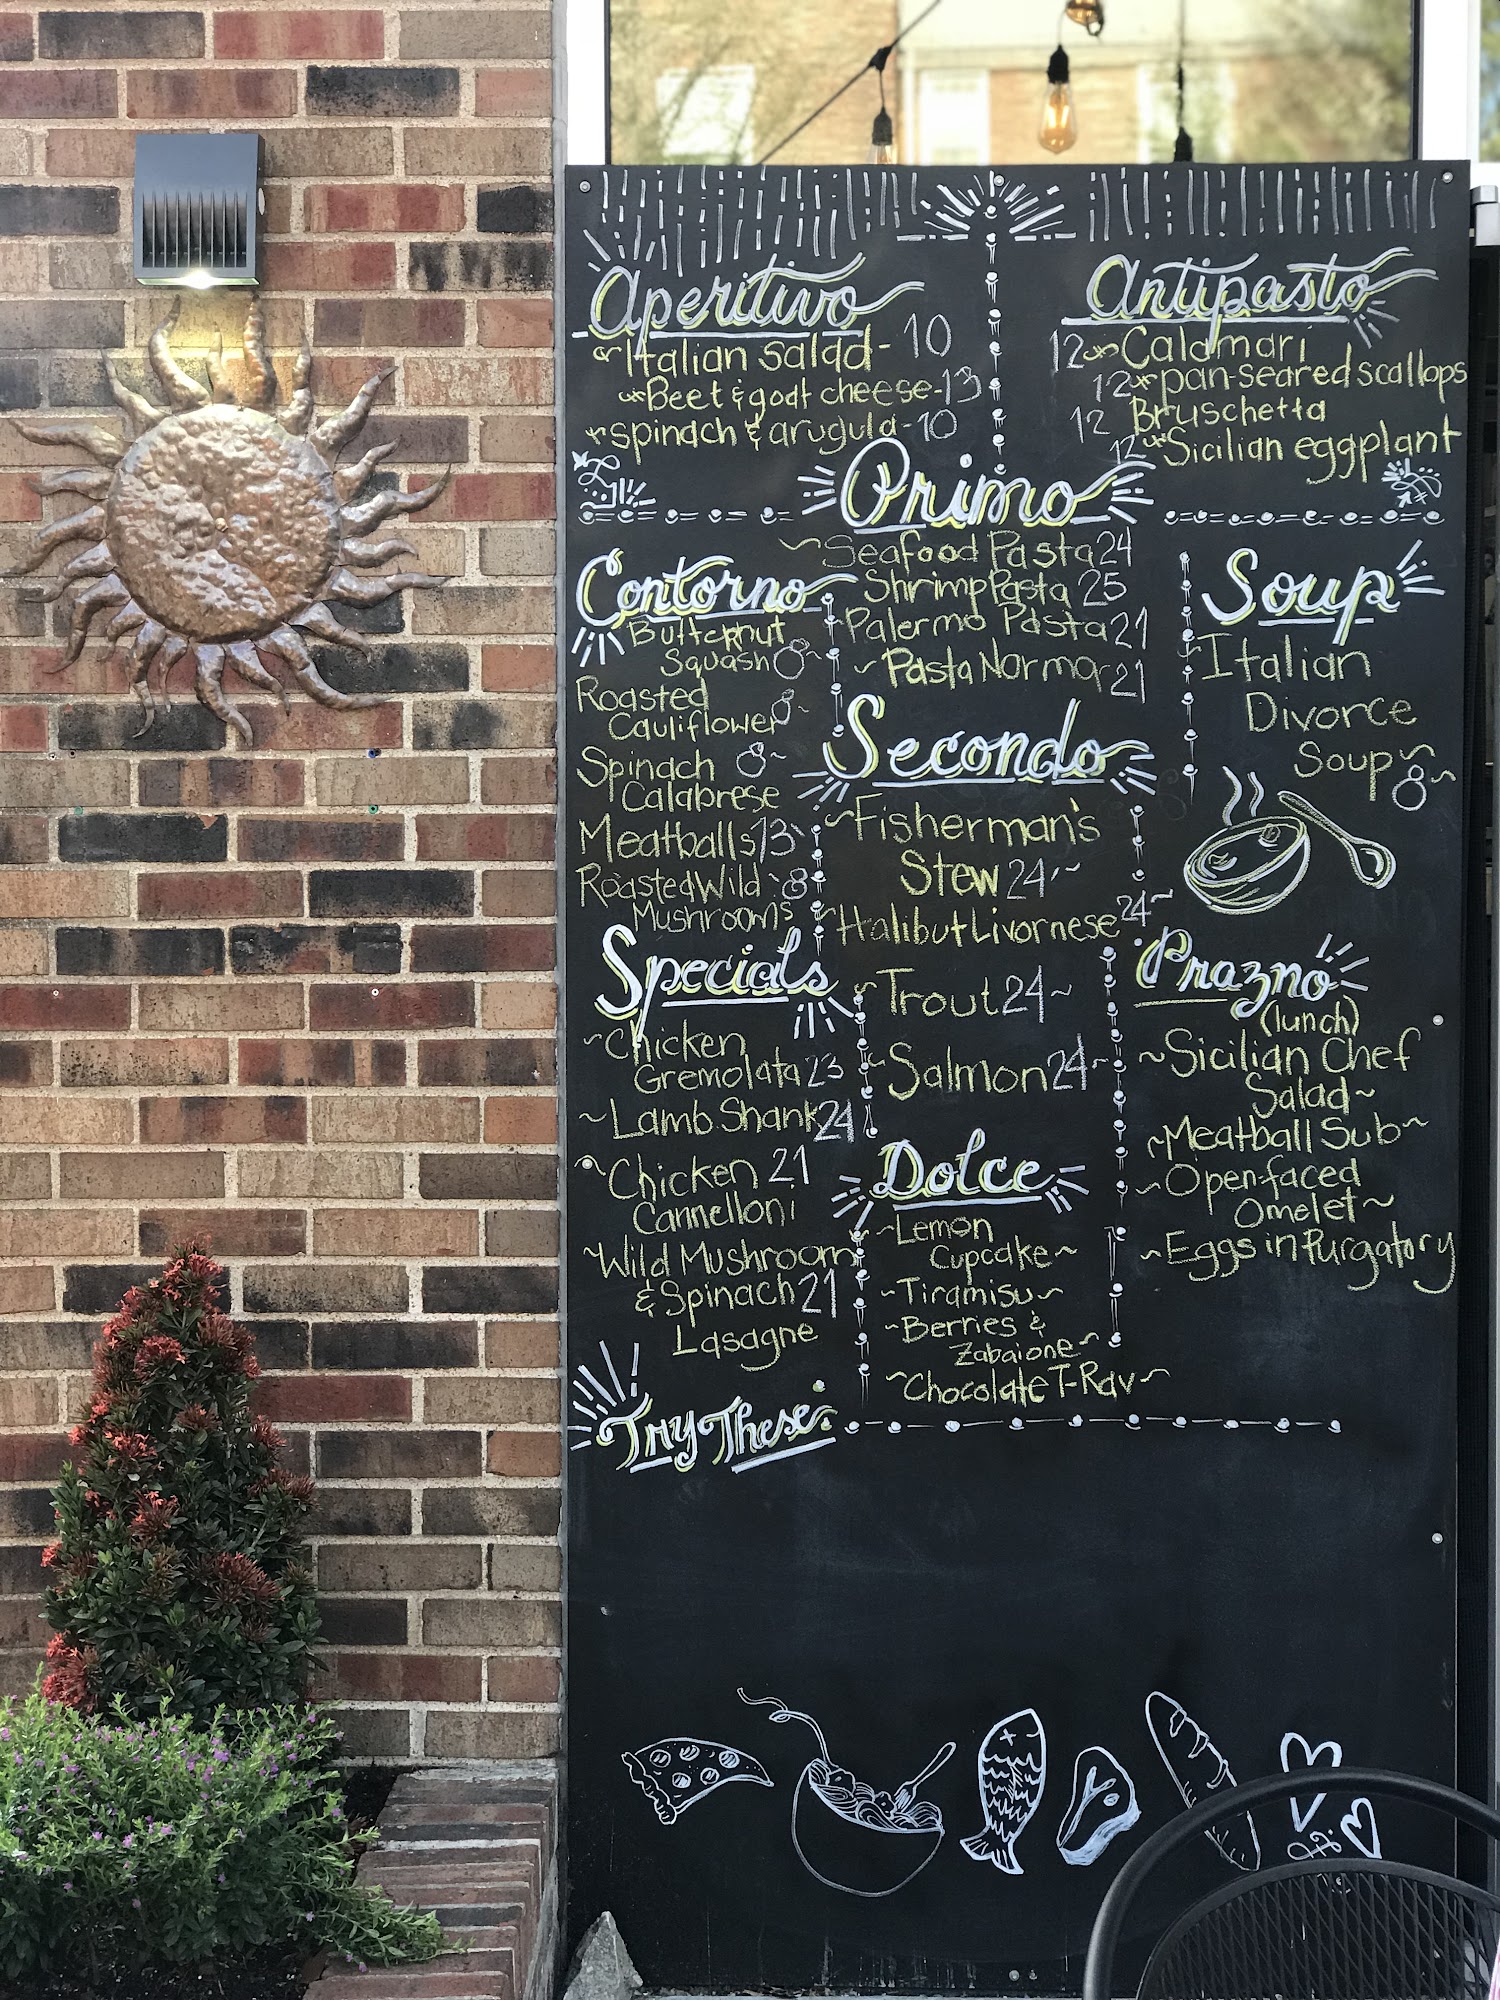 Aperitivo
Italian salad - 10
Beet & goat cheese - 13
spinach & arugula - 10
Antipasto
12 Calamari
12 pan-seared scallops
12 Bruschetta
12 Sicilian eggplant
Primo
Seafood Pasta 24
Shrimp Pasta 25
Palermo Pasta 21
~ Pasta Norma 21
Contorno
Butternut
Squash 8~
Roasted
Cauliflower 8~
Spinach 8~
Calabrese
Meatballs 13~
Roasted Wild 8
Mushrooms
Soup
Italian
Divorce
Soup~
8~
Secondo
~Fisherman's
Stew 24~
Halibut Livornese 24~
~Trout 24~
~Salmon 24~
Specials
~Chicken
Gremolata 23
~Lamb Shank 24
~Chicken 21
Cannelloni
~Wild Mushroom
& Spinach 21
Lasagne
Prazno
(lunch)
~Sicilian Chef
Salad~
~Meatball Sub~
~Open-faced
Omelet~
~Eggs in Purgatory
Dolce
~Lemon
Cupcake~
~Tiramisu~
~Berries &
Zabaione~
~Chocolate T-Rav~
Try These: